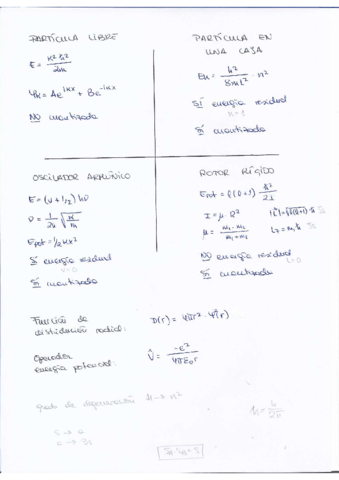 PARTÍCULA LIBRE
E = k² ħ² / 2m
Ψk = Ae^ikx + Be^-ikx
NO cuantizada
PARTÍCULA EN
UNA CAJA
En = h² / 8mL² · n²
SÍ energía residual
n=1
SÍ cuantizada
OSCILADOR ARMÓNICO
E = (v + 1/2) hν
ν = 1/2π √(k/m)
Epot = 1/2 kx²
SÍ energía residual
v=0
SÍ cuantizada
ROTOR RÍGIDO
Erot = l(l+1) ħ² / 2I
I = μ · R²
|L| = √l(l+1) · ħ
μ = m₁ · m₂ / m₁ + m₂
Lz = mₗ ħ
NO energía residual
l=0
SÍ cuantizada
Función de
distribución radial:
D(r) = 4πr² · Ψ²(r)
Operador
energía potencial:
V̂ = -e² / 4πε₀r
grado de degeneración H → n²
ħ = h / 2π